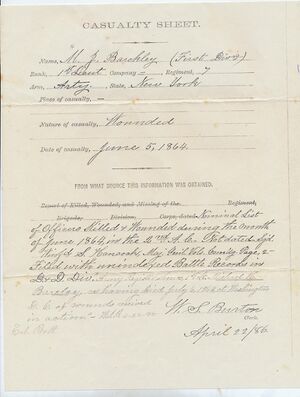 CASUALTY SHEET.
Name, M. J. Barckley (First Div)
Rank, 1st Lieut Company – Regiment, 7
Arm, Arty, State, New York
Place of casualty, —
Nature of casualty, Wounded
Date of casualty, June 5, 1864
FROM WHAT SOURCE THIS INFORMATION WAS OBTAINED.
Report of Killed, Wounded, and Missing of the Regiment,
Brigade, Division, Corps, dated Nominal List
of Officers Killed & Wounded during the month
of June 1864 in the 2nd A. C. Not dated Sgd.
Winfd S. Hancock, Maj Genl Vols Comdg Page, 2–
Filed with unindexed Battle Records in
as having died July 6 1864 at Washington
D. C. of wounds received
in action
W. S. Burton
Clerk.
April 22/86